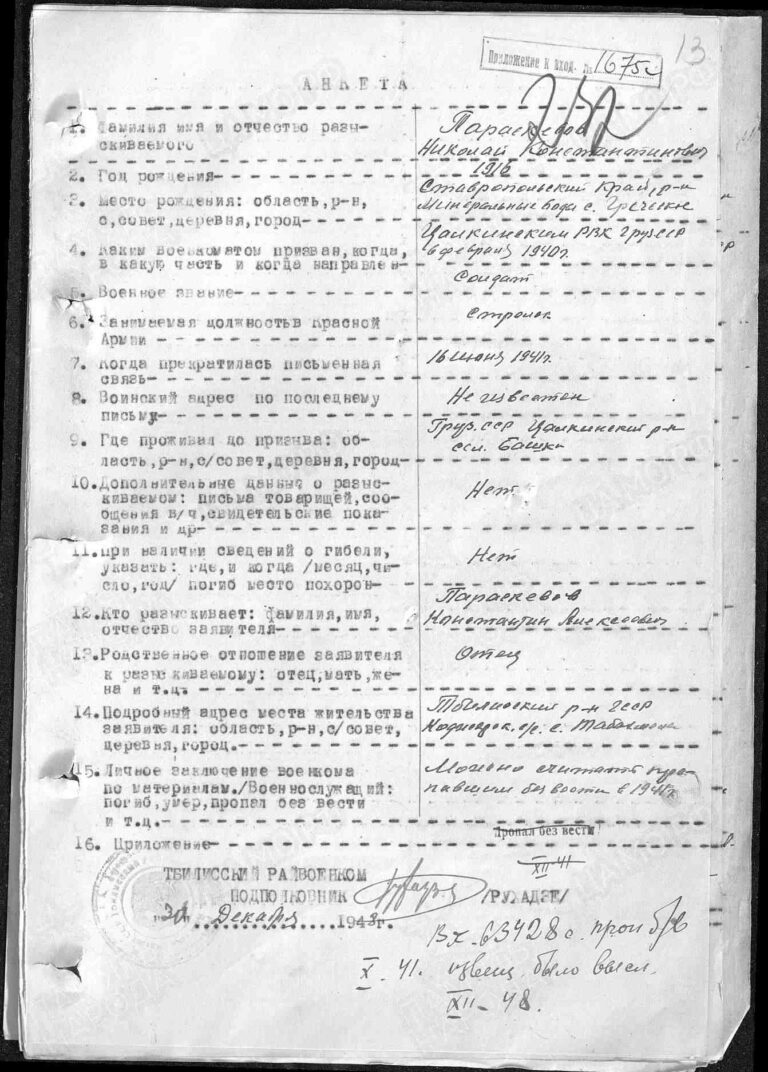 13
Приложение к вход. № 1675с
АНКЕТА
1. Фамилия имя и отчество разы-
скиваемого
Параскевов
Николай Константинович
2. Год рождения-
1916
3. Место рождения: область, р-н,
с, совет, деревня, город-
Ставропольский край, р-н
Минеральные воды с. Греческое
4. Каким военкоматом призван, когда,
в какую часть и когда направлен-
Цалкинским РВК ГрузССР
в феврале 1940г.
5. Военное звание-
Солдат
6. Занимаемая должностьв Красной
Армии
7. Когда прекратилась письменная
связь-
16 июня 1941г.
8. Воинский адрес по последнему
письму-
Не известен
9. Где проживал до призыва: об-
ласть, р-н, с/совет, деревня, город-
Груз.ССР Цалкинский р-н
сел. Башки
10. Дополнительные данные о разыс-
киваемом: письма товарищей, соо-
бщения в/ч, свидетельские пока-
зания и др-
Нет
11. При наличии сведений о гибели,
указать: где, и когда /месяц, чи-
сло, год/ погиб место похорон-
Нет
12. Кто разыскивает: фамилия, имя,
отчество заявителя-
Параскевов
Константин Алексеевич
13. Родственное отношение заявителя
к разыскиваемому: отец, мать, же-
на и т.д.
Отец
14. Подробный адрес места жительства
заявителя: область, р-н, с/совет,
деревня, город.-
Тбилисский р-н ГССР
15. Личное заключение военкома
по материалам./Военнослужащий:
погиб, умер, пропал без вести
и т.д.-
Можно считать про-
павшим без вести в 1941г
16. Приложение-
Пропал без вести
XII-41
ТБИЛИССКИЙ РАЙВОЕНКОМ
ПОДПОЛКОВНИК
/РУХАДЗЕ/
"30" Декабря 1948г.
Вх. 63428с. проп б/в
X-41. извещ. было высл.
XII-48.